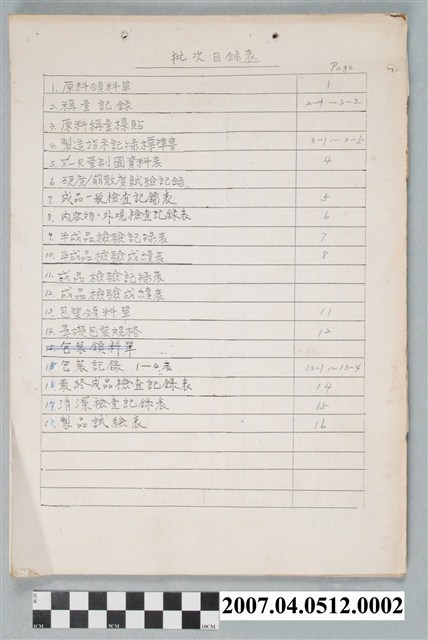 批次目錄表
Page
1. 原料領料單 1
2. 稱量記錄 2-1~2-2
3. 原料稱量標貼
4. 製造指示記錄標準書 3-1~3-5
5. X-R管制圖資料表 4
6. 硬度/崩散度試驗記錄
7. 成品一般檢查記錄表 5
8. 內容物·外觀檢查記錄表 6
9. 半成品檢驗記錄表 7
10. 半成品檢驗成績表 8
11. 成品檢驗記錄表
12. 成品檢驗成績表
13. 包裝領料單 11
14. 基礎包裝規格 12
包裝領料單
15. 包裝記錄 1-4表 13-1~13-4
16. 最終成品檢查記錄表 14
17. 清潔檢查記錄表 15
製品試驗表 16
1CM 5CM 10CM
2007.04.0512.0002